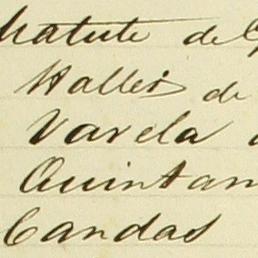 de
Valles de
Varela
Quintan
Candas